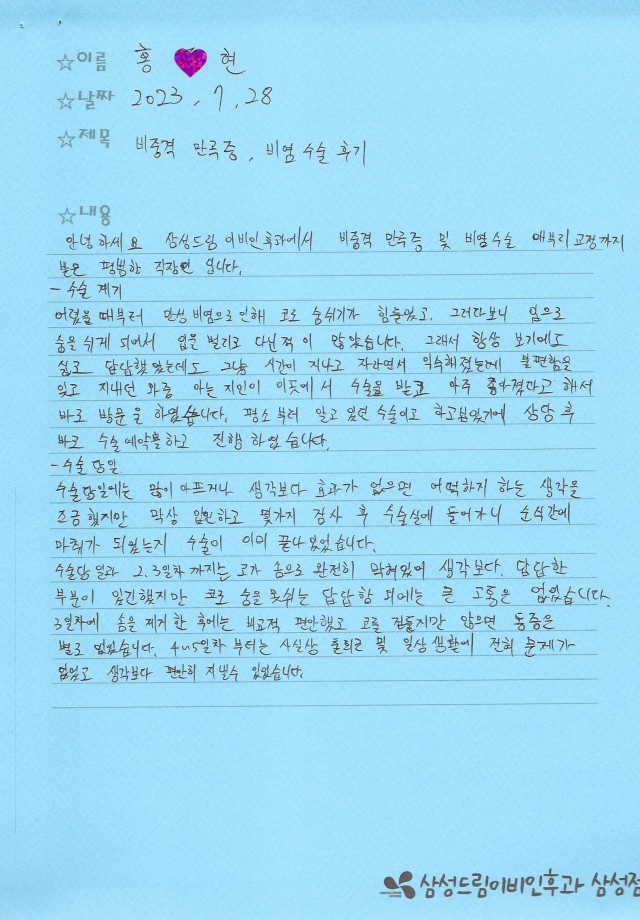 ☆이름 홍 현
☆날짜 2023. 7. 28
☆제목 비중격 만곡증, 비염수술 후기
☆내용
안녕하세요 삼성드림이비인후과에서 비중격 만곡증 및 비염수술 매부리교정까지
받은 평범한 직장인 입니다.
- 수술 계기
어렸을때부터 만성비염으로 인해 코로 숨쉬기가 힘들었고. 그러다보니 입으로
숨을 쉬게 되어서 입을 벌리고 다닌적이 많았습니다. 그래서 항상 보기에도
싫고 답답했었는데도 그냥 시간이 지나고 자라면서 익숙해졌는데 불편함을
잊고 지내던 와중 아는 지인이 이곳에서 수술을 받고 아주 좋아졌다고 해서
바로 방문을 하였습니다. 평소부터 알고 있던 수술이고 하고싶었기에 상담 후
바로 수술예약을하고 진행 하였습니다.
- 수술 당일
수술당일에는 많이 아프거나 생각보다 효과가 없으면 어떡하지 하는 생각을
조금했지만 막상 입원하고 몇가지 검사 후 수술실에 들어가니 순식간에
마취가 되었는지 수술이 이미 끝나있었습니다.
수술당일과 2.3일차까지는 코가 솜으로 완전히 막혀있어 생각보다. 답답한
부분이 있긴했지만 코로 숨을 못쉬는 답답함 외에는 큰 고통은 없었습니다.
3일차에 솜을 제거한 후에는 비교적 편안했고 코를 건들지만 않으면 통증은
별로 없었습니다. 4~5일차 부터는 사실상 출퇴근 및 일상생활에 전혀 문제가
없었고 생각보다 편안히 지낼수 있었습니다.
삼성드림이비인후과 삼성점